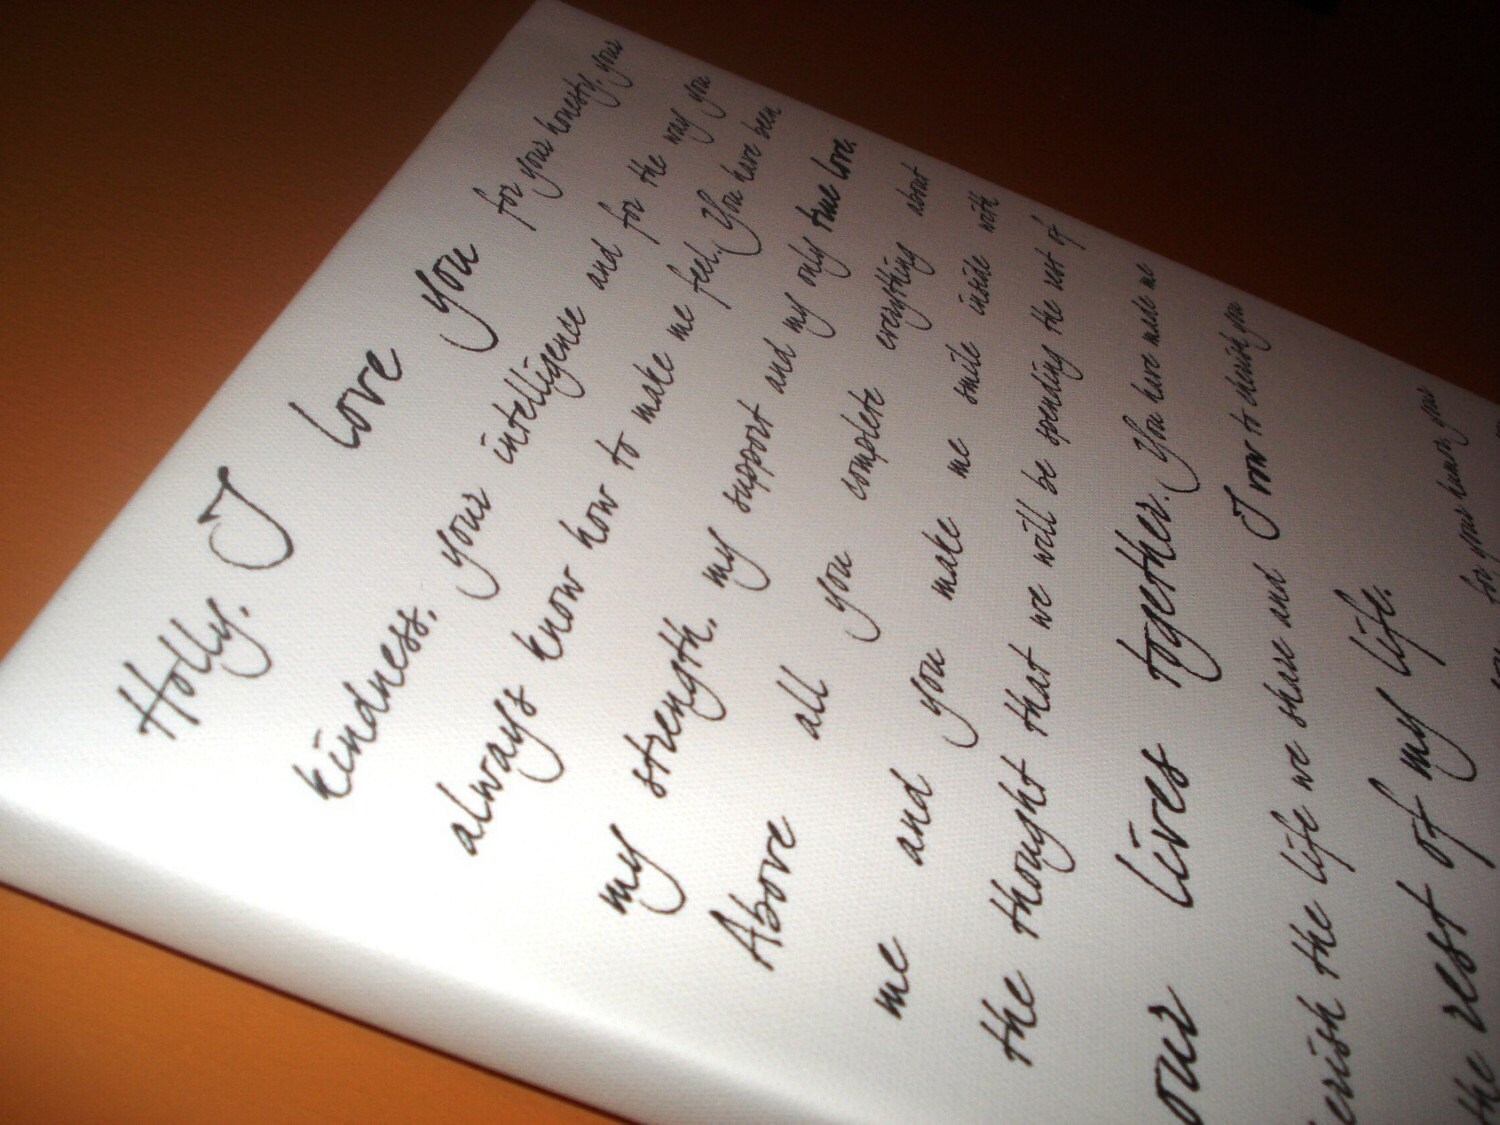 Holly, I love you for your honesty, your
kindness, your intelligence and for the way you
always know how to make me feel. You have been
my strength, my support and my only true love.
Above all you complete everything about
me and you make me smile inside with
the thought that we will be spending the rest of
our lives together. You have made me
cherish the life we share and I vow to cherish you
the rest of my life.
for your humor, your
you